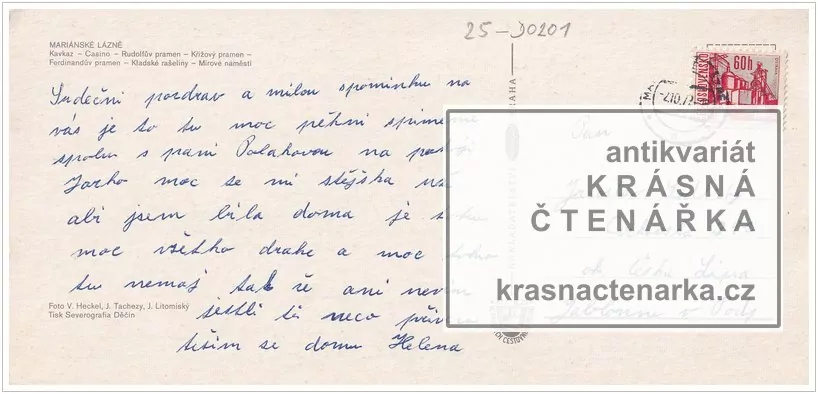 25-D0201
MARIÁNSKÉ LÁZNĚ
Kavkaz – Casino – Rudolfův pramen – Křížový pramen –
Ferdinandův pramen – Kladské rašeliny – Mírové náměstí
Srdečni pozdrav a milou spominku na
vás je to tu moc pěkni
spolu s pani Polakovou na
Jarko moc se mi stějska
abi jsem bila doma je
moc všetko drahe a moc
tu nemaš tak že ani
jestli ti neco
těšim se domu Helena
Foto V. Heckel, J. Tachezy, J. Litomiský
Tisk Severografia Děčín
PRAHA
60h
-2.10.7
Pan
Česka Lipa
Jablonne v Podj
antikvariát
KRÁSNÁ
ČTENÁŘKA
krasnactenarka.cz